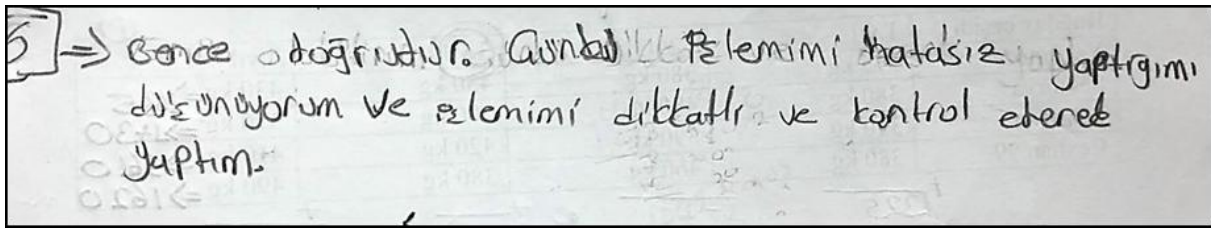 5 => Bence doğrudur. Çünkü işlemimi hatasız yaptığımı
düşünüyorum ve işlemimi dikkatli ve kontrol ederek
yaptım.